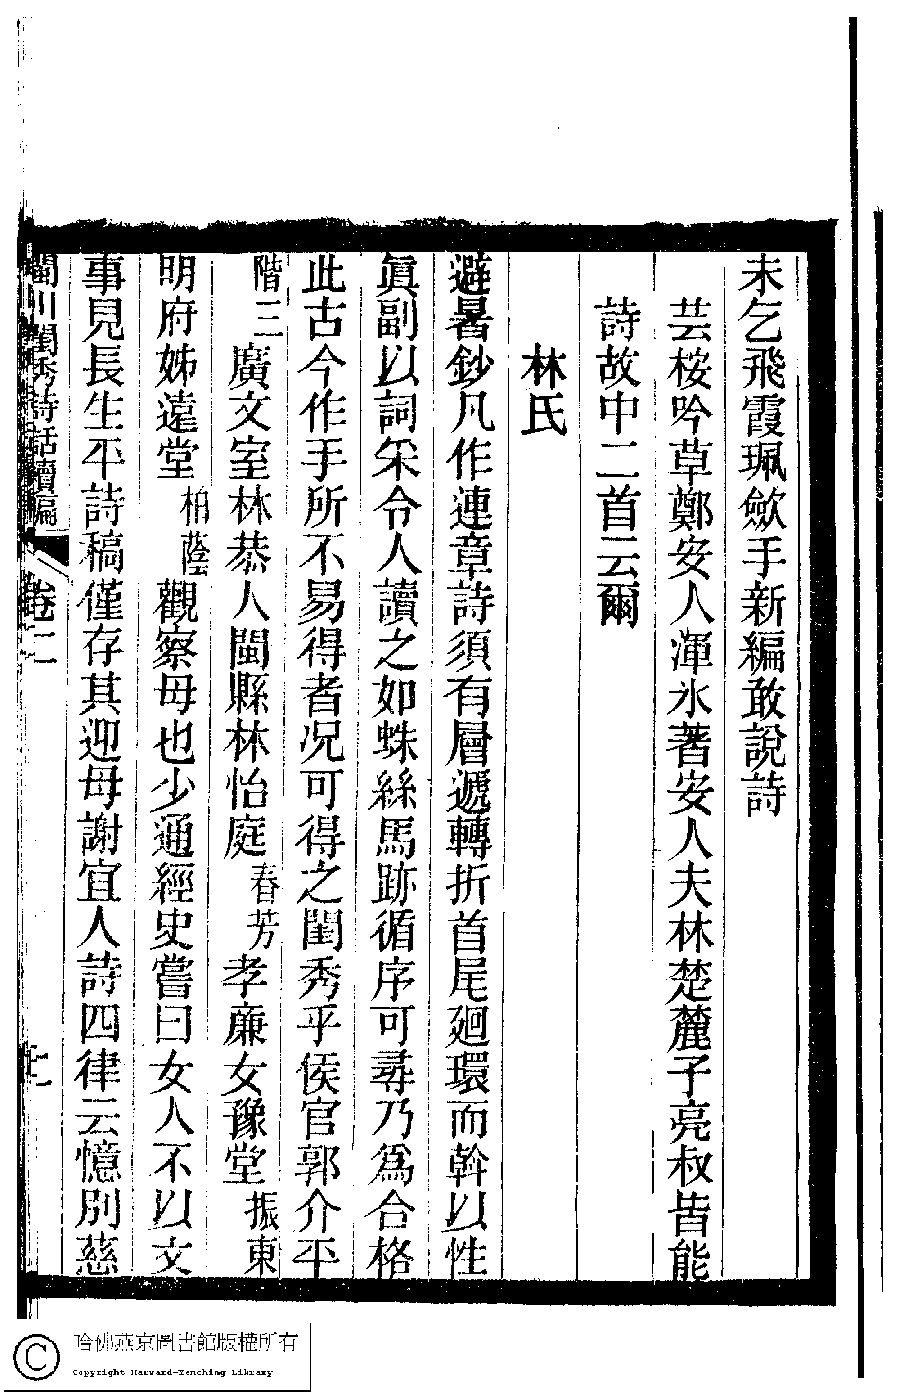 未乞飛霞珮斂手新編敢說詩
芸桉吟草鄭安人渾氷著安人夫林楚麓子亮叔皆能
詩故中二首云爾
林氏
避暑鈔凡作連章詩須有層遞轉折首尾廻環而斡以性
眞副以詞采令人讀之如蛛絲馬跡循序可尋乃爲合格
此古今作手所不易得者况可得之閨秀乎侯官郭介平
階三廣文室林恭人閩縣林怡庭春芳孝廉女豫堂振東
明府姊遠堂柏蔭觀察母也少通經史嘗曰女人不以文
事見長生平詩稿僅存其迎母謝宜人詩四律云憶別慈
閩川閨秀詩話續編 卷二
哈佛燕京圖書館版權所有
Copyright Harvard-Yenching Library